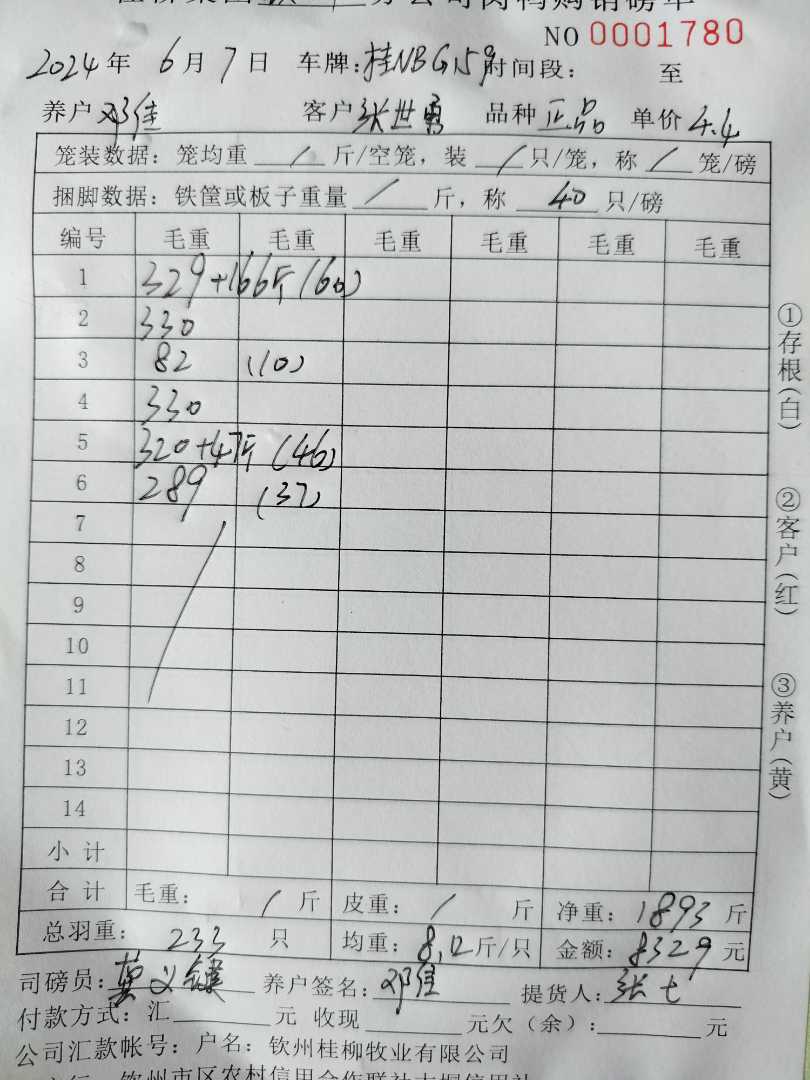 分公司肉鸭购销磅单
NO 0001780
2024年 6月7日 车牌:桂NBG159 时间段: 至
养户 邓佳 客户 张世勇 品种 正品 单价 4.4
笼装数据: 笼均重 / 斤/空笼, 装 / 只/笼, 称 / 笼/磅
捆脚数据: 铁筐或板子重量 / 斤, 称 40 只/磅
编号 毛重 毛重 毛重 毛重 毛重 毛重
1 329+166斤(60)
2 330
3 82 (10)
4 330
5 320+47斤(46)
6 289 (37)
7
8
9
10
11
12
13
14
小计
合计 毛重: / 斤 皮重: / 斤 净重: 1893 斤
总羽重: 233 只 均重: 8.12斤/只 金额: 8329 元
司磅员: 莫义 养户签名: 邓佳 提货人: 张七
付款方式: 汇 元 收现 元欠(余): 元
公司汇款帐号: 户名: 钦州桂柳牧业有限公司
钦州市区农村信用合作联社
①存根(白)
②客户(红)
③养户(黄)